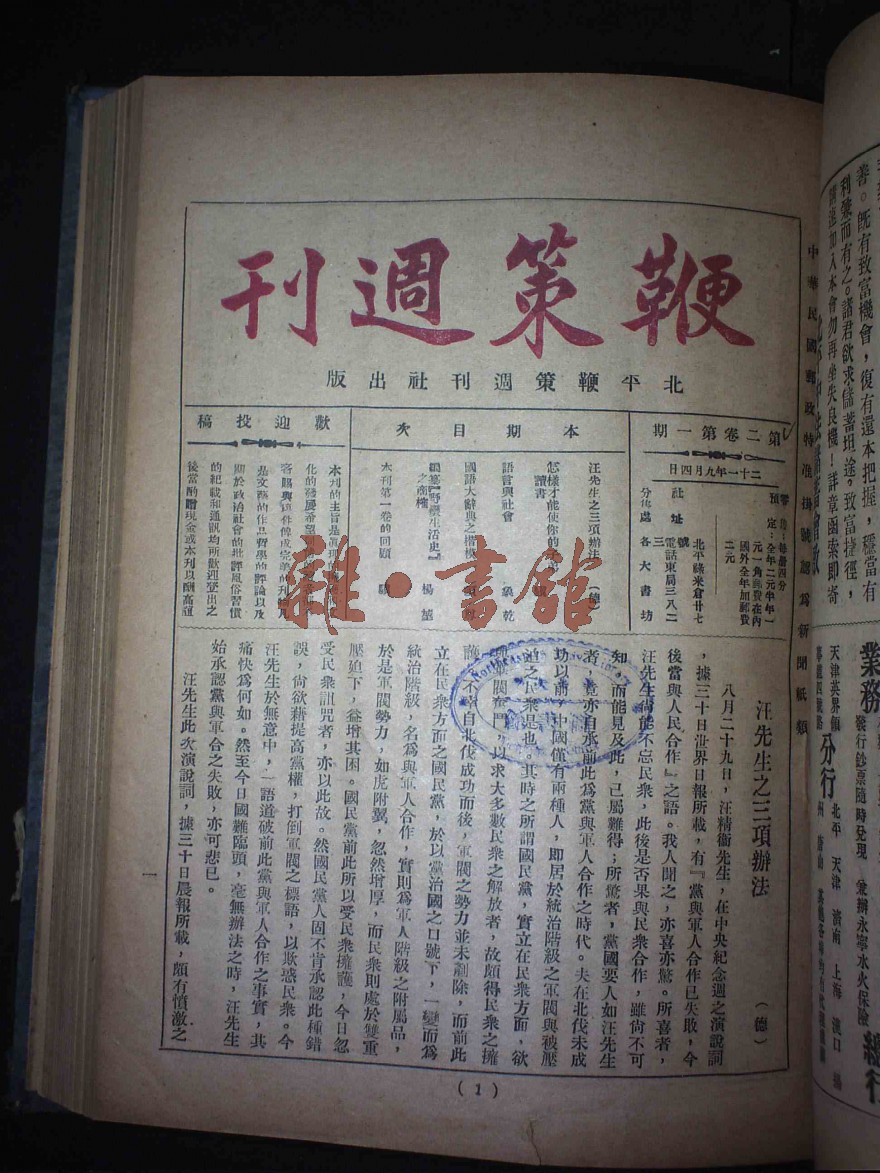 鞭策週刊
北平鞭策週刊社出版
第二卷第一期
二十一年九月四日
零售：每册四分
預定：全年二元半年一
元一角郵費在內
國外全年加郵費
二元
社址 北平祿米倉廿七
號
電話東局三八二
三
分售處 各大書坊
本期目次
汪先生之三項辦法 （德）
怎樣才能使你的
讀書
語言與社會 乾
國語大辭典之楷模
野蠻生活史』
之商榷 楊堃
本刊第一卷的回顧
歡迎投稿
本刊的主旨是
化的發展希望
客賜與這件偉成完美的刊物凡
是文藝的作品哲學的評論以及
期於政治社會的批評風俗習慣
的紀載和通訊均所歡迎登出之
後當酌贈現金或本刊以酬高誼
汪先生之三項辦法 （德）
八月二十九日，汪精衞先生，在中央紀念週之演說詞
，據三十日世界日報所載，有『黨與軍人合作已失敗，今
後當與人民合作』之語。我人聞之，亦喜亦驚。所喜者，
汪先生尙能不忘民衆，此後是否果與民衆合作，雖尙不可
知，而能見及此，已屬難得；所驚者，黨國要人如汪先生
者，竟亦自承前此爲黨與軍人合作之時代。夫在北伐未成
功以前，中國僅有兩種人，即居於統治階級之軍閥與被壓
迫之民衆是也。其時之所謂國民黨，實立在民衆方面，欲
與軍閥奮鬥，以求大多數民衆之解放者，故頗得民衆之擁
護。不幸自北伐成功而後，軍閥之勢力並未剷除，而前此
立在民衆方面之國民黨，於以黨治國之口號下，一變而爲
統治階級，名爲與軍人合作，實則爲軍人階級之附屬品，
於是軍閥勢力，如虎附翼，忽然增厚，而民衆則處於雙重
壓迫下，益增其困。國民黨前此所以受民衆擁護，今日忽
受民衆詛咒者，亦以此故。然國民黨人固不肯承認此種錯
誤，尙欲藉提高黨權，打倒軍閥之標語，以欺惑民衆。今
汪先生於無意中，一語道破前此黨與軍人合作之事實，其
痛快爲何如。然至今日國難臨頭，毫無辦法之時，汪先生
始承認黨與軍合之失敗，亦可悲已。
汪先生此次演說詞，據三十日晨報所載，頗有憤激之
一
(1)
中華民國郵政特准掛號認爲新聞紙類
善。旣有致富機會，復有還本把握，穩當有
利兼而有之。諸君欲求儲蓄坦途，致富捷徑，
請速加入本會勿再坐失良機！詳章函索即寄
業務
發行鈔票隨時兌現 兼辦永寧水火保險
總行
天津英界領
分行
北平 天津 濟南 上海 漢口
唐山
雜·書館